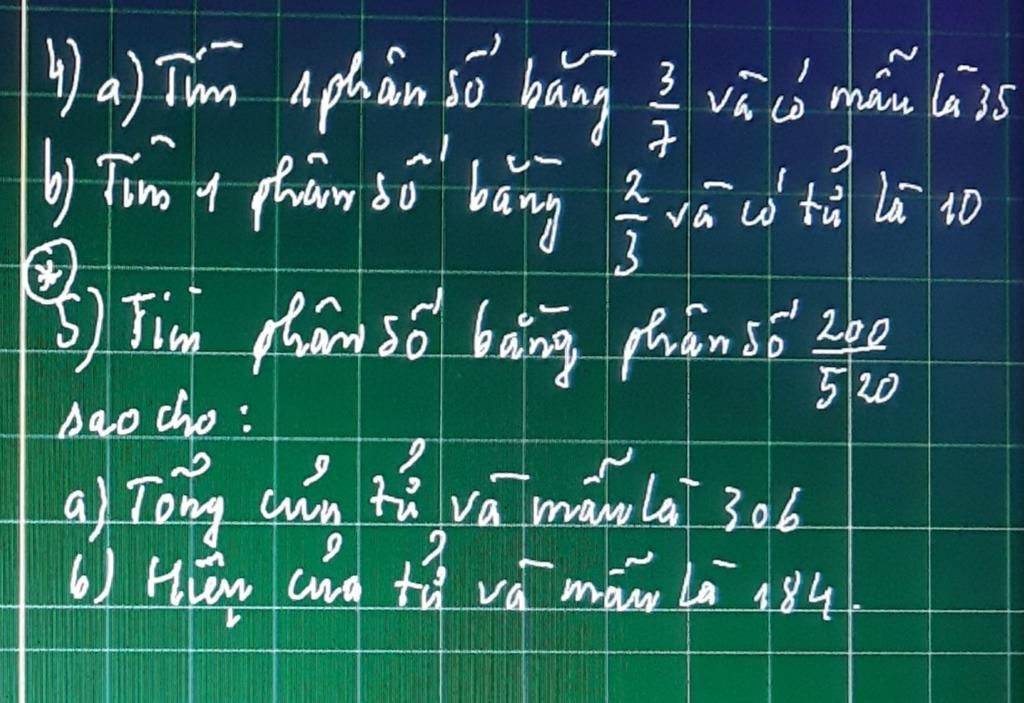 4) a) Tìm 1 phân số bằng 3/7 và có mẫu là 35
b) Tìm 1 phân số bằng 2/3 và có tử là 10
*
5) Tìm phân số bằng phân số 200/520
sao cho:
a) Tổng của tử và mẫu là 306
b) Hiệu của tử và mẫu là 184.